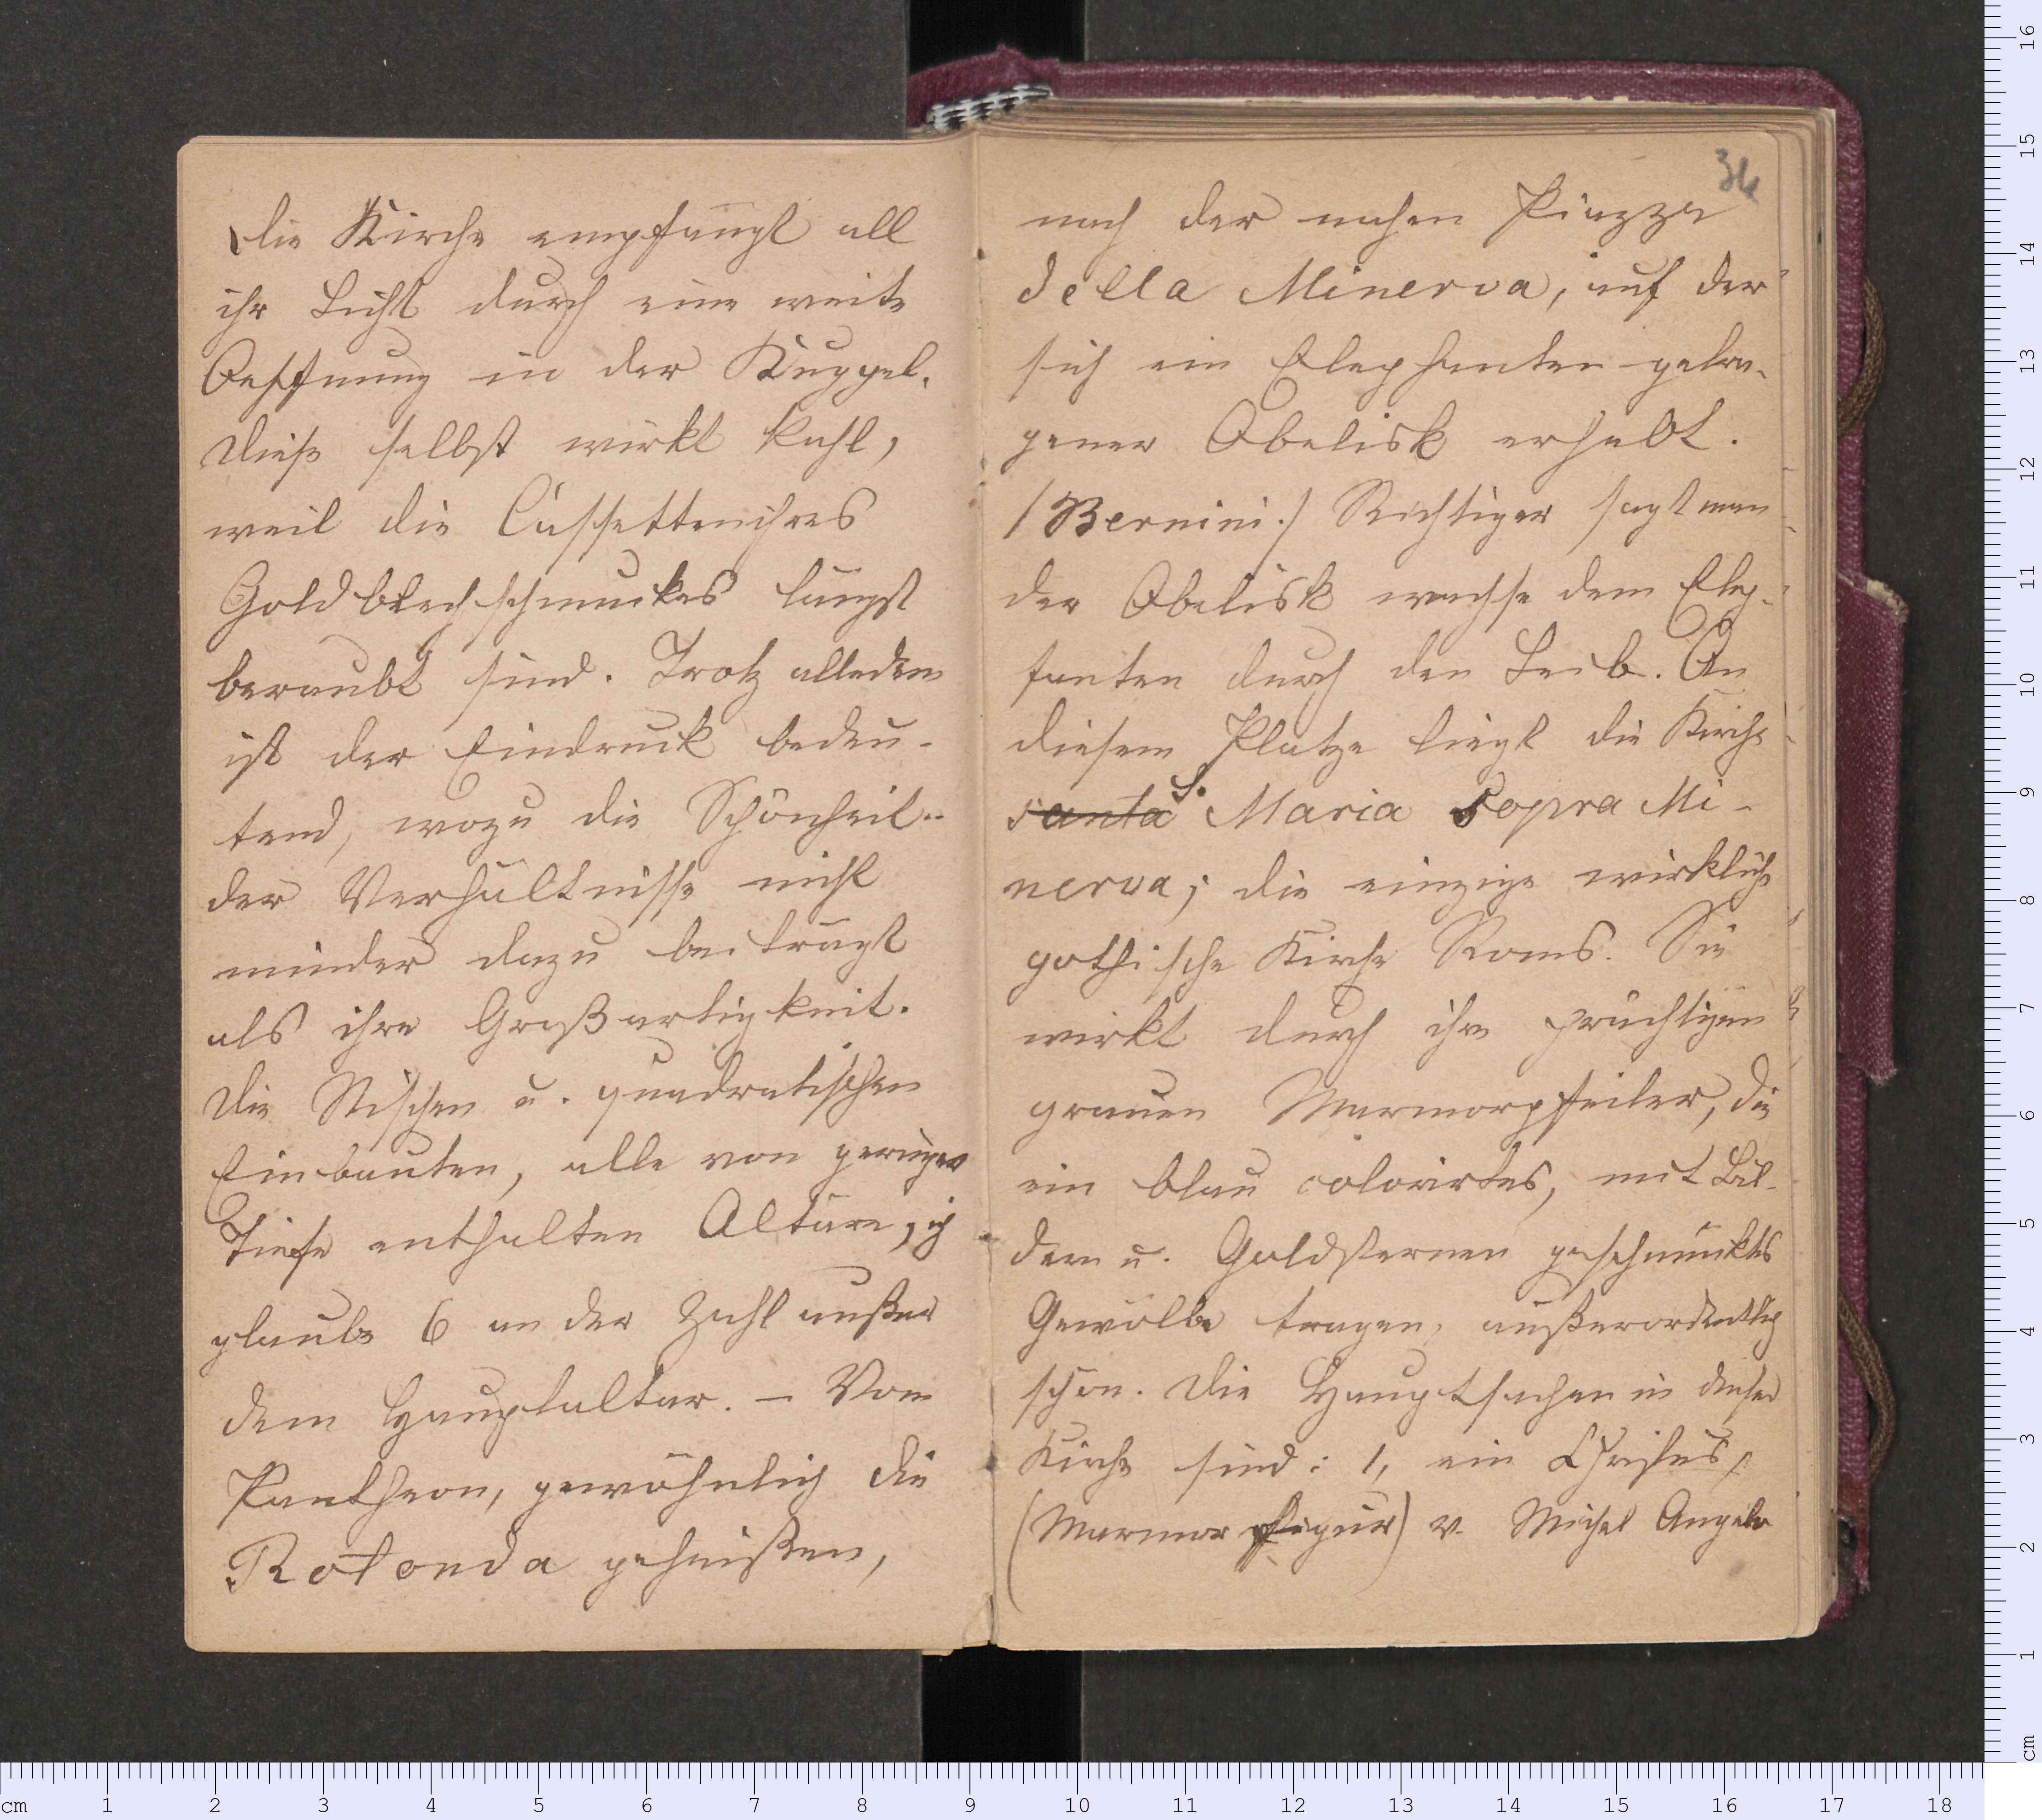 die Kirche empfängt all
ihr Licht durch eine weite
Oeffnung in der Kuppel.
Diese selbst wirkt kahl,
weil die Cassetten ihres
Goldblechschmuckes längst
beraubt sind. Trotz alledem
ist der Eindruck bedeu-
tend, wozu die Schönheit
der Verhältnisse nicht
minder dazu beiträgt
als ihre Großartigkeit.
Die Nischen u. quadratischen
Einbauten, alle von geringer
Tiefe enthalten Altäre, ich
glaube 6 an der Zahl außer
dem Hauptaltar. – Vom
Pantheon, gewöhnlich die
Rotonda geheißen,
34
nach der nahen Piazza
della Minerva, auf der
sich ein Elephanten getra-
gener Obelisk erhebt.
/Bernini./ Richtiger sagt man
der Obelisk wachse dem Elep-
fanten durch den Leib. An
diesem Platze liegt die Kirche
santa S. Maria sopra Mi-
nerva; die einzige wirkliche
gothische Kirche Roms. Sie
wirkt durch ihre prächtigen
grauen Marmorpfeiler, die
ein blau colorirtes, mit Bil-
dern u. Goldsternen geschmücktes
Gewölbe tragen, außerordentlich
schön. Die Hauptsachen in dieser
Kirche sind: 1, ein Christus,
(Marmorfigur) v. Michel Angelo